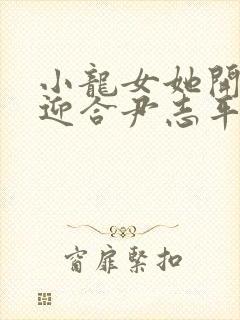 小龍女她開
迎合尹志平
窗扉緊扣